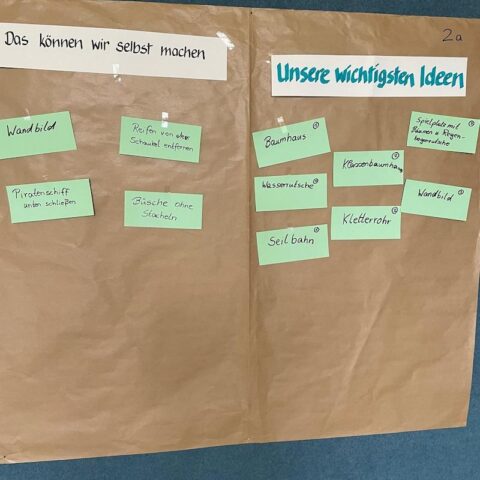 Das können wir selbst machen
Wandbild
Reifen von der
Schaukel entfernen
Piratenschiff
unten schließen
Büsche ohne
Stacheln
2a
Unsere wichtigsten Ideen
Baumhaus
Wasserrutsche
Seilbahn
Klassenbaumhaus
Kletterrohr
Spielplatz mit
Wandbild